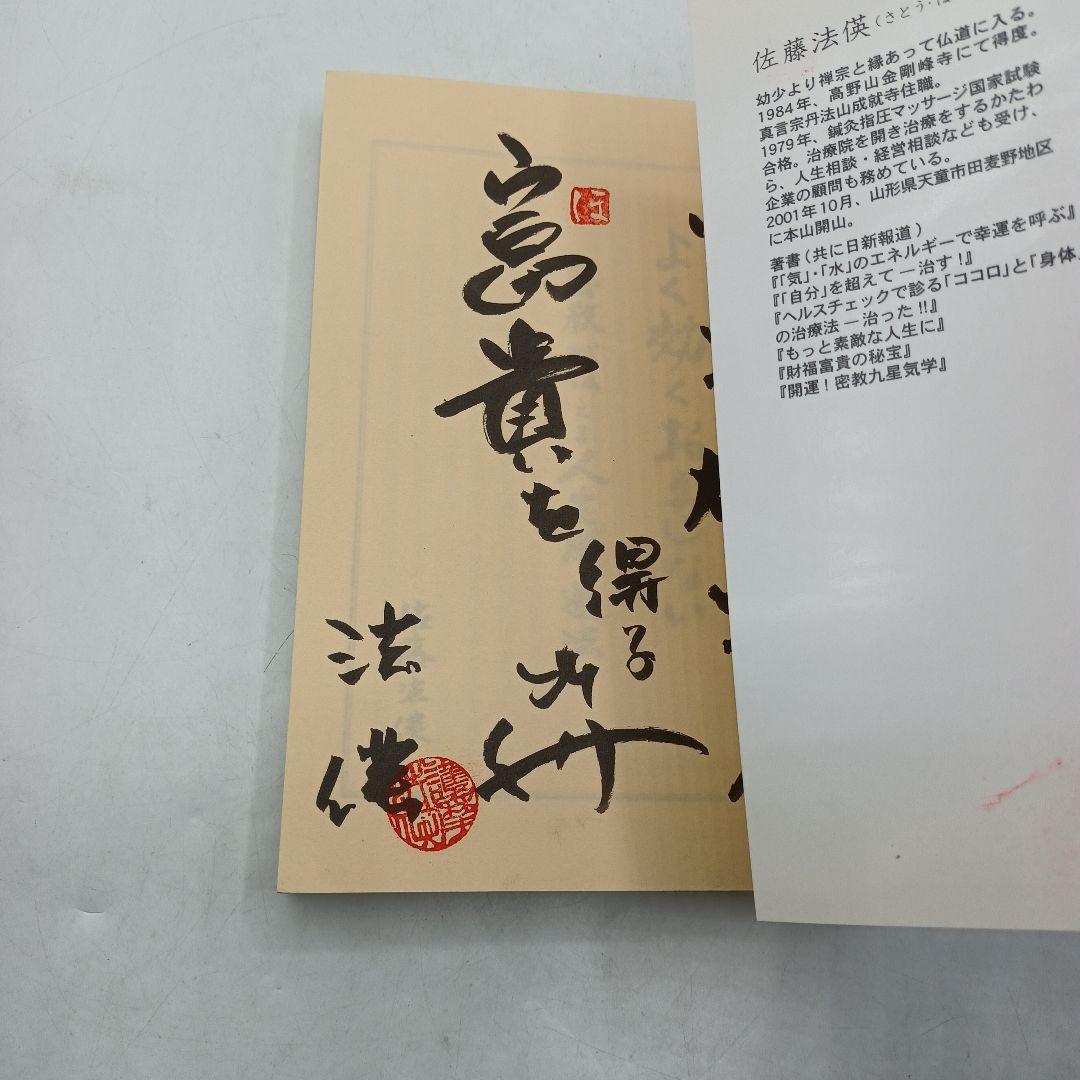 佐藤法偀(さとう・ほ
幼少より禅宗と縁あって仏道に入る。
1984年、高野山金剛峰寺にて得度。
真言宗丹法山成就寺住職。
1979年、鍼灸指圧マッサージ国家試験
合格。治療院を開き治療をするかたわ
ら、人生相談・経営相談なども受け、
企業の顧問も務めている。
2001年10月、山形県天童市田麦野地区
に本山開山。
著書(共に日新報道)
『「気」・「水」のエネルギーで幸運を呼ぶ』
『「自分」を超えて―治す!』
『ヘルスチェックで診る「ココロ」と「身体」
の治療法―治った!!』
『もっと素敵な人生に』
『財福富貴の秘宝』
『開運!密教九星気学』
富貴を
得る
法偀